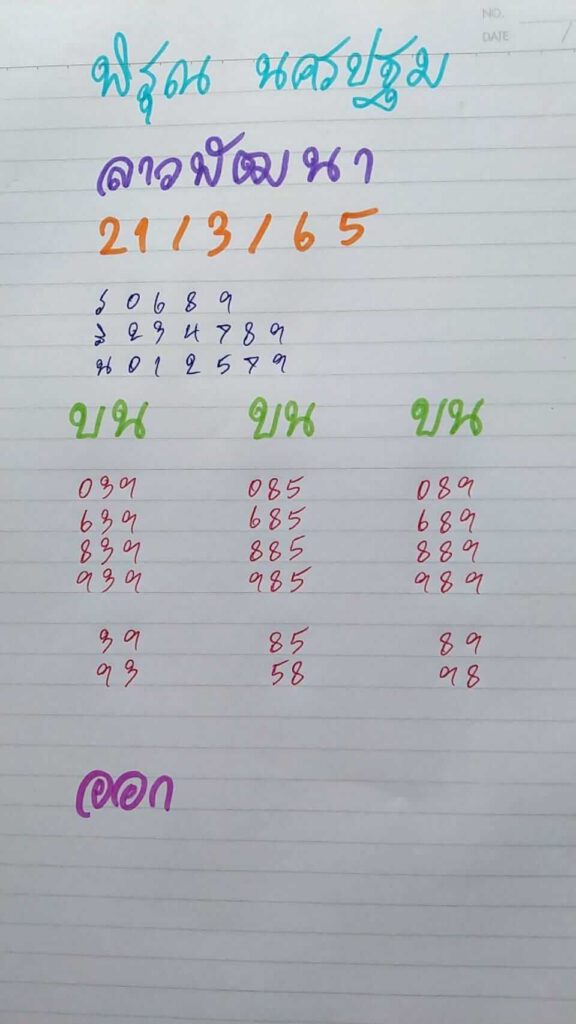 NO.
DATE /
พิรุณ นครปฐม
ลาวพัฒนา
21/3/65
ร 0 6 8 9
ส 2 3 4 7 8 9
น 0 1 2 5 7 9
บน บน บน
039 085 089
639 685 689
839 885 889
939 985 989
39 85 89
93 58 98
ออก